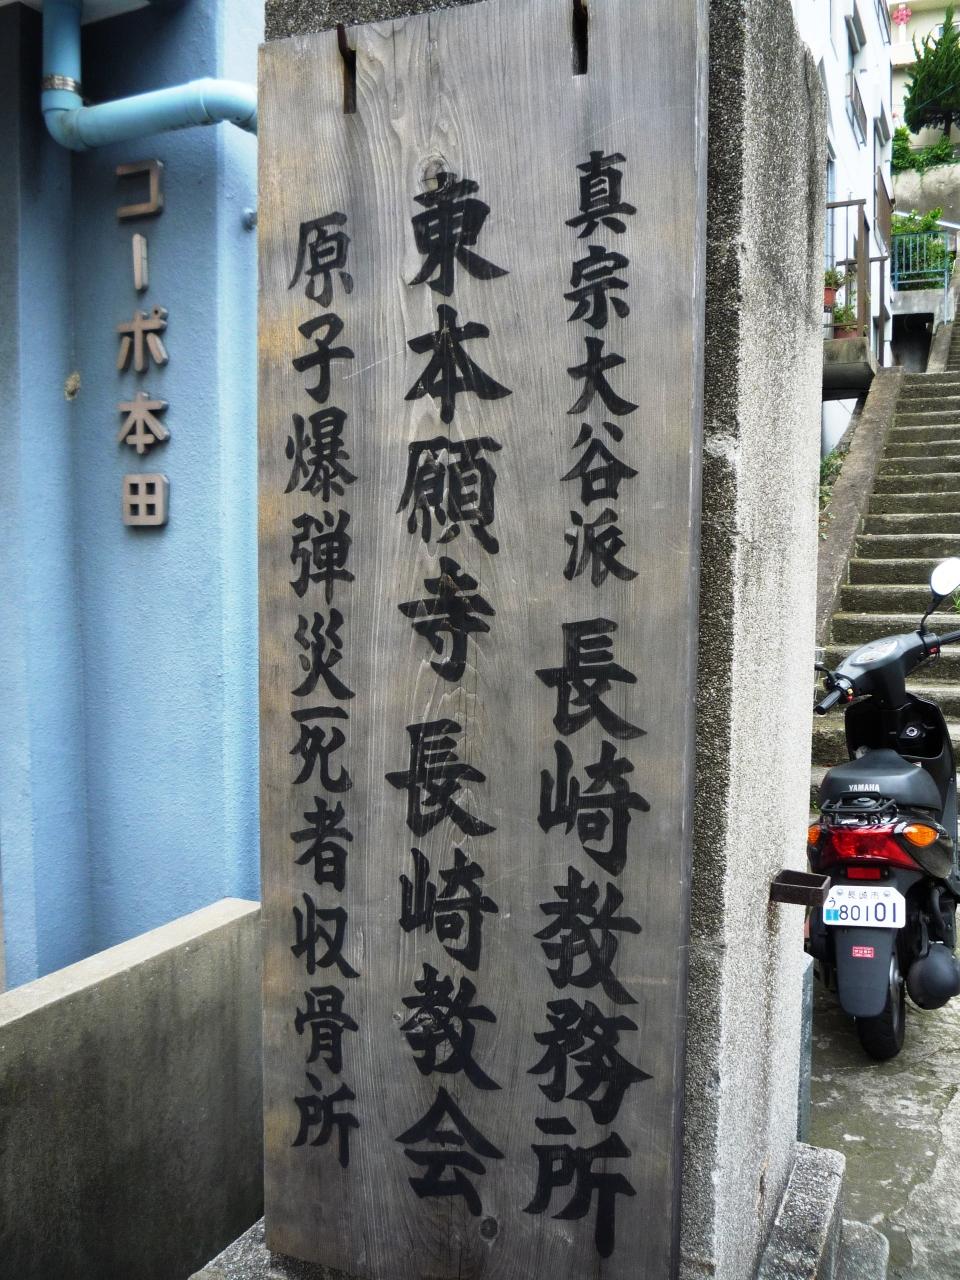 真宗大谷派 長崎教務所
東本願寺 長崎教会
原子爆弾災死者収骨所
コーポ本田
YAMAHA
長崎市
う 80101